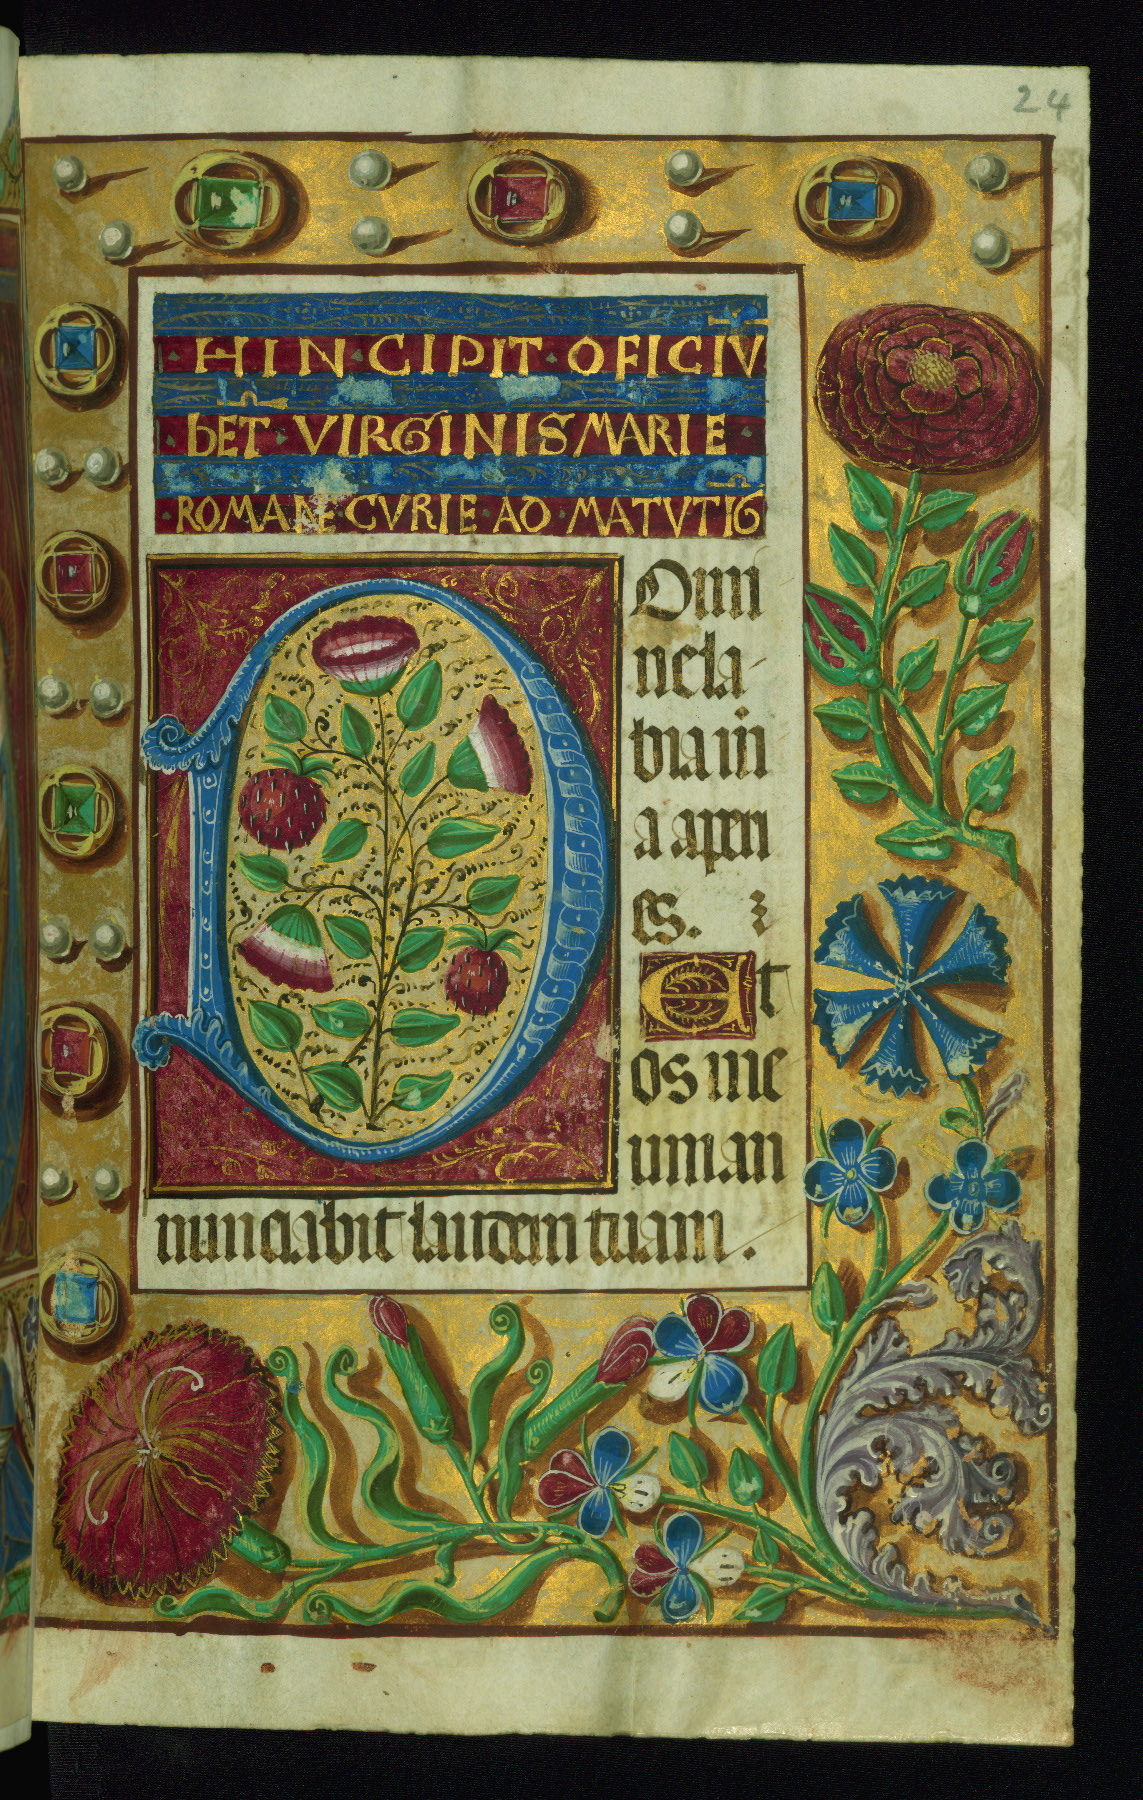 24
HINCIPIT·OFICIV
bET·VIRGINIS MARIE
ROMANE·CVRIE·AD·MATVTI
D Omi
ne la
bia m
a aperi
es. ⁊
Et
os me
um an
nunciabit laudem tuam.